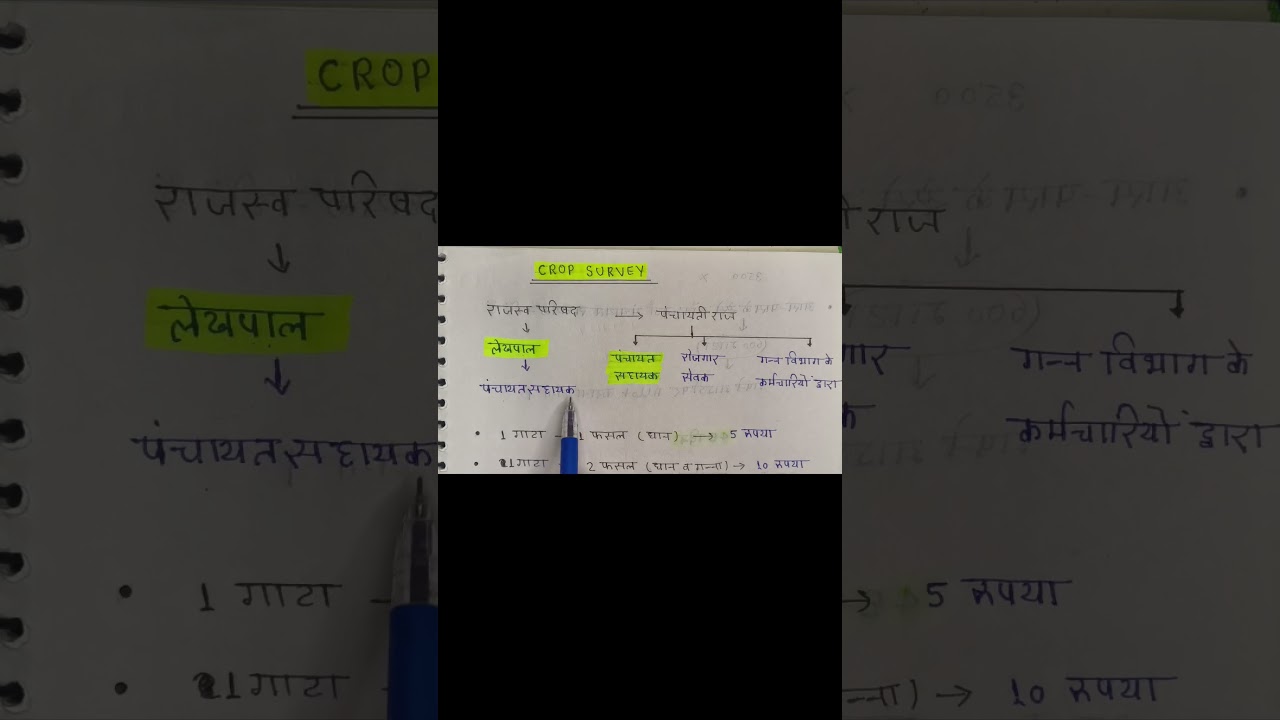 CROP SURVEY
राजस्व परिषद → पंचायती राज
↓
लेखपाल
↓
पंचायत सहायक
पंचायत सहायक
रोजगार सेवक
गन्ना विभाग के
कर्मचारियों द्वारा
• 1 गाटा - 1 फसल (धान) → 5 रूपया
• 1 गाटा 2 फसल (धान व गन्ना) → 10 रूपया